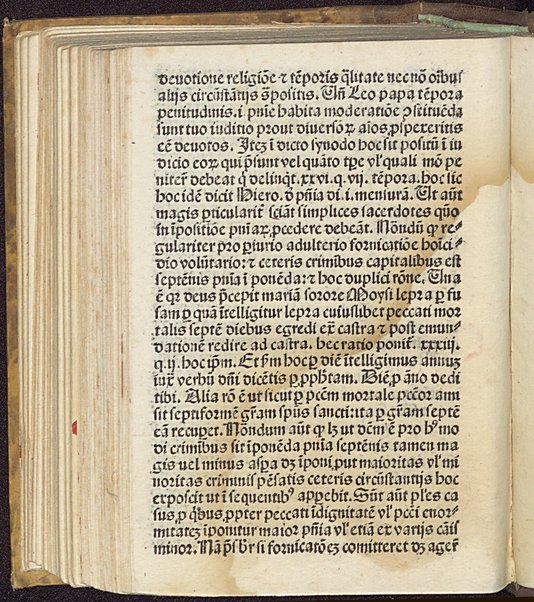 deuotione religiōe ⁊ tēporis q̄litate nec nō oībus
alijs circūstātijs ꝯpositis. Vn̄ Leo papa tēpora
penitudinis. i. pn̄ie habita moderatiōe ꝯstituēda
sunt tuo iuditio prout diuersoꝝ aīos ꝓspexeritis
eē deuotos. Itez̄ ī dicto synodo hoc sit positū ī iu
dicio coꝝ qui p̄sunt vel quāto tp̄e vl' quali mō pe
niter̄ debeat q̄ delinq̄t. xxvi. q. vij. tēpora. hoc sic
hoc idē dicit Hiero. ꝺ pn̄ia di. i. mensurā. Ut aūt
magis ꝑticularit̄ sciāt simplices sacerdotes quō
in īpositiōe pn̄iaꝝ ꝓcedere debeāt. Nōndū ꝙ re⸗
gulariter pro ꝑiurio adulterio fornicatiōe hoīci⸗
dio volūtario: ⁊ ceteris crimībus capitalibus est
septēnis pn̄ia ī ponēda: ⁊ hoc duplici rōne. Una
ē qꝛ deus p̄cepit mariā sororē Moysi lepra ꝑ fu
sam ꝑ quā ītelligitur lepra cuiuslibet peccati mor
talis septē diebus egredi ex̄ castra ⁊ post emun⸗
dationē redire ad castra. hec ratio ponit̄. xxxiij.
q. ij. hoc ip̄m. Et ẜm hoc ꝑ diē ītelligimus annuꝫ
iuxͣ verbū dn̄i dicētis ꝑ ꝓph̄tam. Diē ꝓ āno dedi
tibi. Alia rō ē ut sicut ꝑ pc̄cm mortale pc̄cōr ami
sit septiformē gr̄am sp̄us sancti: ita ꝑ gr̄am septē
eā recuꝑet. Nōndum aūt ꝙ lꝫ ut dc̄m ē pro hꝰ mo
di crimībus sit īponēda pn̄ia septēnis tamen ma
gis vel minus asꝑa dꝫ īponi, put maioritas vl' mi
noritas criminis pēsatis ceteris circūstantijs hoc
exposcit ut ī sequentibꝰ apꝑebit. Sūt aūt pl'es ca
sus, ꝓ q̄bus, ꝓpter peccati īdignitatē vl' pctī enor⸗
mitateꝫ īponitur maior pn̄ia vl' etiā ex varijs cāis
minor. Nā p̄sb'r si fornicatōeꝫ comitteret dꝫ ager̄